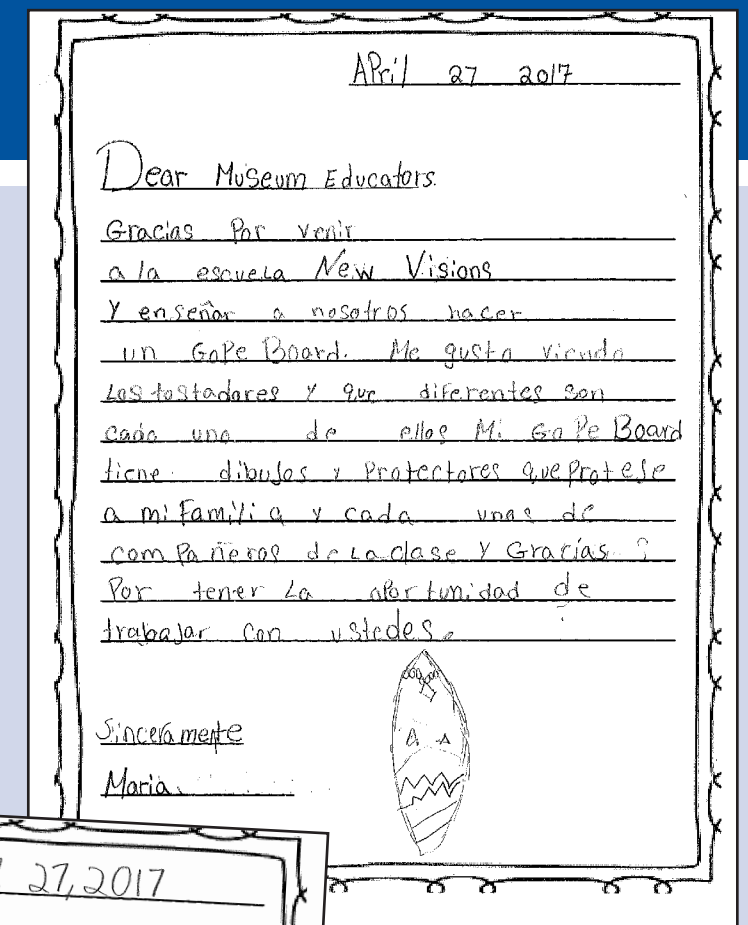 APril 27 2017
Dear Museum Educators.
Gracias Por venir
a la escuela New Visions
Y enseñar a nosotros hacer
un GoPe Board. Me gusta viendo
Los tostadores y que diferentes son
cada uno de ellos Mi GoPe Board
tiene dibujos y Protectores que Protese
a mi Familia y cada unas de
comPañeros de La clase Y Gracias
Por tener La aPortunidad de
trabajar con ustedes.
Sinceramente
Maria
27, 2017